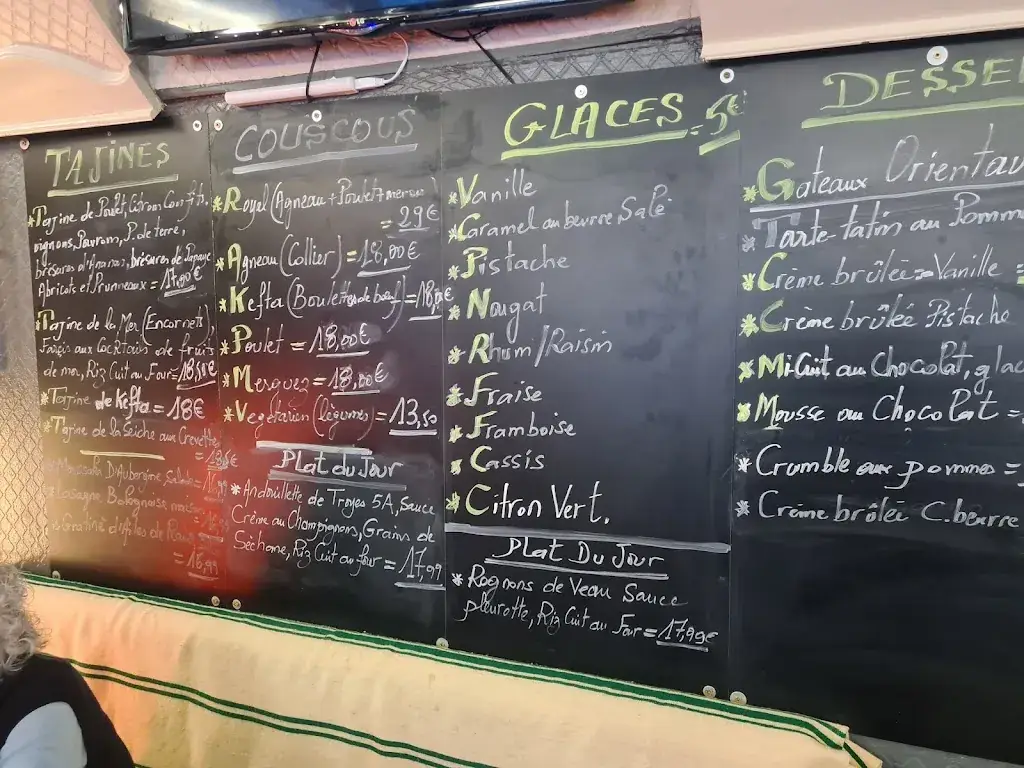 TAJINES
*Tajine de Poulet, Citron Confits,
oignons, Poivrons, P. de terre,
brisures d'Ananas, brisures de Papaye
Abricots et Prunneaux = 17,90€
*Tajine de la Mer (Encornets,
Farçis aux Cocktails de fruits
de mer, Riz Cuit au Four = 18,50€
*Tajine de Kefta = 18€
*Tajine de la Seiche aux Crevette
D'Aubergine
Lasagne Bolognaise maison
= 16,99
COUSCOUS
*Royal (Agneau + Poulet + merguez)
= 29€
*Agneau (Collier) = 18,00€
*Kefta (Boulettes de bœuf) = 18,00€
*Poulet = 18,00€
*Merguez = 18,00€
*Vegetarien (légumes) = 13,50
Plat du Jour
*Andouillette de Troyes 5A, Sauce
Crème au Champignons, Grains de
Séchone, Riz Cuit au four = 17,99
GLACES = 5€
*Vanille
*Caramel au beurre Salé
*Pistache
*Nougat
*Rhum/Raisin
*Fraise
*Framboise
*Cassis
*Citron Vert.
Plat Du Jour
*Rognons de Veau Sauce
pleurotte, Riz Cuit au Four = 17,99€
DESSE
*Gateaux Orientau
*Tarte tatin au Pomm
*Crème brûlée Vanille =
*Crème brûlée Pistache
*Mi-Cuit au Chocolat, glac
*Mousse au Chocolat =
*Crumble aux pommes =
*Crème brûlée C.beurre